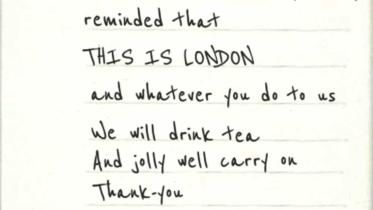 reminded that
THIS IS LONDON
and whatever you do to us
We will drink tea
And jolly well carry on
Thank-you